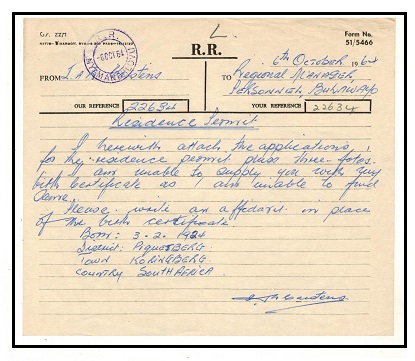 L.
Form No.
51/5466
R.R.
6th October, 1964
FROM I.A.M. Carstens
TO Regional Manager,
Personnel, Bulawayo
OUR REFERENCE 22634
YOUR REFERENCE 22634
Residence Permit
I herewith attach the applications,
for my residence permit plus three fotos.
I am unable to supply you with my
birth certificate as I am unable to find
same.
Please write an affidavit in place
of the birth certificate
Born: 3-2-1924
District: Piquetberg
Town Koringberg
Country South Africa